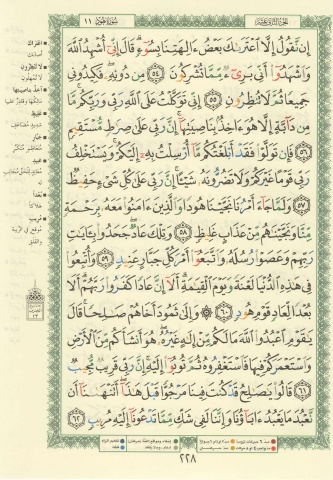 الجزء الثاني عشر
سورة هود ١١
إِن نَّقُولُ إِلَّا ٱعْتَرَىٰكَ بَعْضُ ءَالِهَتِنَا بِسُوٓءٍ قَالَ إِنِّىٓ أُشْهِدُ ٱللَّهَ
وَٱشْهَدُوٓا۟ أَنِّى بَرِىٓءٌ مِّمَّا تُشْرِكُونَ ٥٤ مِن دُونِهِۦ فَكِيدُونِى
جَمِيعًا ثُمَّ لَا تُنظِرُونِ ٥٥ إِنِّى تَوَكَّلْتُ عَلَى ٱللَّهِ رَبِّى وَرَبِّكُم مَّا
مِن دَآبَّةٍ إِلَّا هُوَ ءَاخِذٌۢ بِنَاصِيَتِهَآ إِنَّ رَبِّى عَلَىٰ صِرَٰطٍ مُّسْتَقِيمٍ
٥٦ فَإِن تَوَلَّوْا۟ فَقَدْ أَبْلَغْتُكُم مَّآ أُرْسِلْتُ بِهِۦٓ إِلَيْكُمْ وَيَسْتَخْلِفُ
رَبِّى قَوْمًا غَيْرَكُمْ وَلَا تَضُرُّونَهُۥ شَيْـًٔا إِنَّ رَبِّى عَلَىٰ كُلِّ شَىْءٍ حَفِيظٌ
٥٧ وَلَمَّا جَآءَ أَمْرُنَا نَجَّيْنَا هُودًا وَٱلَّذِينَ ءَامَنُوا۟ مَعَهُۥ بِرَحْمَةٍ
مِّنَّا وَنَجَّيْنَٰهُم مِّنْ عَذَابٍ غَلِيظٍ ٥٨ وَتِلْكَ عَادٌ جَحَدُوا۟ بِـَٔايَٰتِ
رَبِّهِمْ وَعَصَوْا۟ رُسُلَهُۥ وَٱتَّبَعُوٓا۟ أَمْرَ كُلِّ جَبَّارٍ عَنِيدٍ ٥٩ وَأُتْبِعُوا۟
فِى هَٰذِهِ ٱلدُّنْيَا لَعْنَةً وَيَوْمَ ٱلْقِيَٰمَةِ أَلَآ إِنَّ عَادًا كَفَرُوا۟ رَبَّهُمْ أَلَا
بُعْدًا لِّعَادٍ قَوْمِ هُودٍ ٦٠ وَإِلَىٰ ثَمُودَ أَخَاهُمْ صَٰلِحًا قَالَ
يَٰقَوْمِ ٱعْبُدُوا۟ ٱللَّهَ مَا لَكُم مِّنْ إِلَٰهٍ غَيْرُهُۥ هُوَ أَنشَأَكُم مِّنَ ٱلْأَرْضِ
وَٱسْتَعْمَرَكُمْ فِيهَا فَٱسْتَغْفِرُوهُ ثُمَّ تُوبُوٓا۟ إِلَيْهِ إِنَّ رَبِّى قَرِيبٌ مُّجِيبٌ
٦١ قَالُوا۟ يَٰصَٰلِحُ قَدْ كُنتَ فِينَا مَرْجُوًّا قَبْلَ هَٰذَآ أَتَنْهَىٰنَآ أَن
نَّعْبُدَ مَا يَعْبُدُ ءَابَآؤُنَا وَإِنَّنَا لَفِى شَكٍّ مِّمَّا تَدْعُونَآ إِلَيْهِ مُرِيبٍ ٦٢
٢٢٨